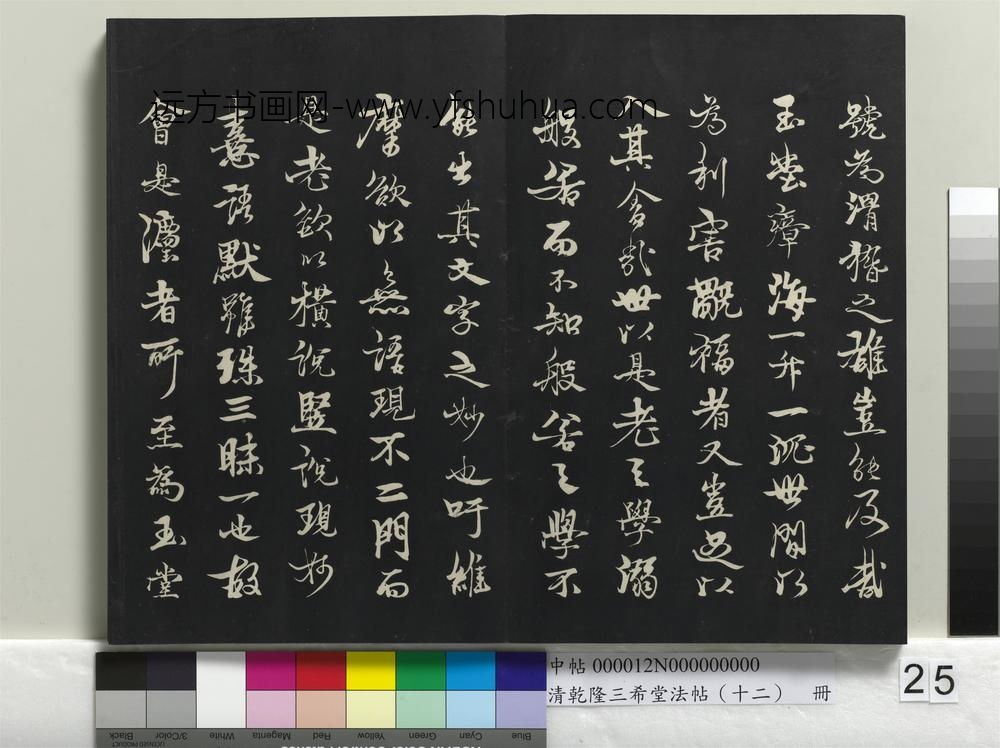 號為渭之雄豈能及哉
玉堂瘴海一升一沉世間以
為利害旤福者又豈足以
入其舍哉世以是老之學溺
般若而不知般若之學不
能出其文字之妙也吁維
摩欲以無語現不二門而
是老欲以橫說豎說現妙
意語默雖殊三昧一也故
會是者所至為玉堂
远方书画网-www.yfshuhua.com
中帖 000012N000000000
清乾隆三希堂法帖（十二） 冊
25
Black 3/Color White Magenta Red Yellow Green Cyan Blue